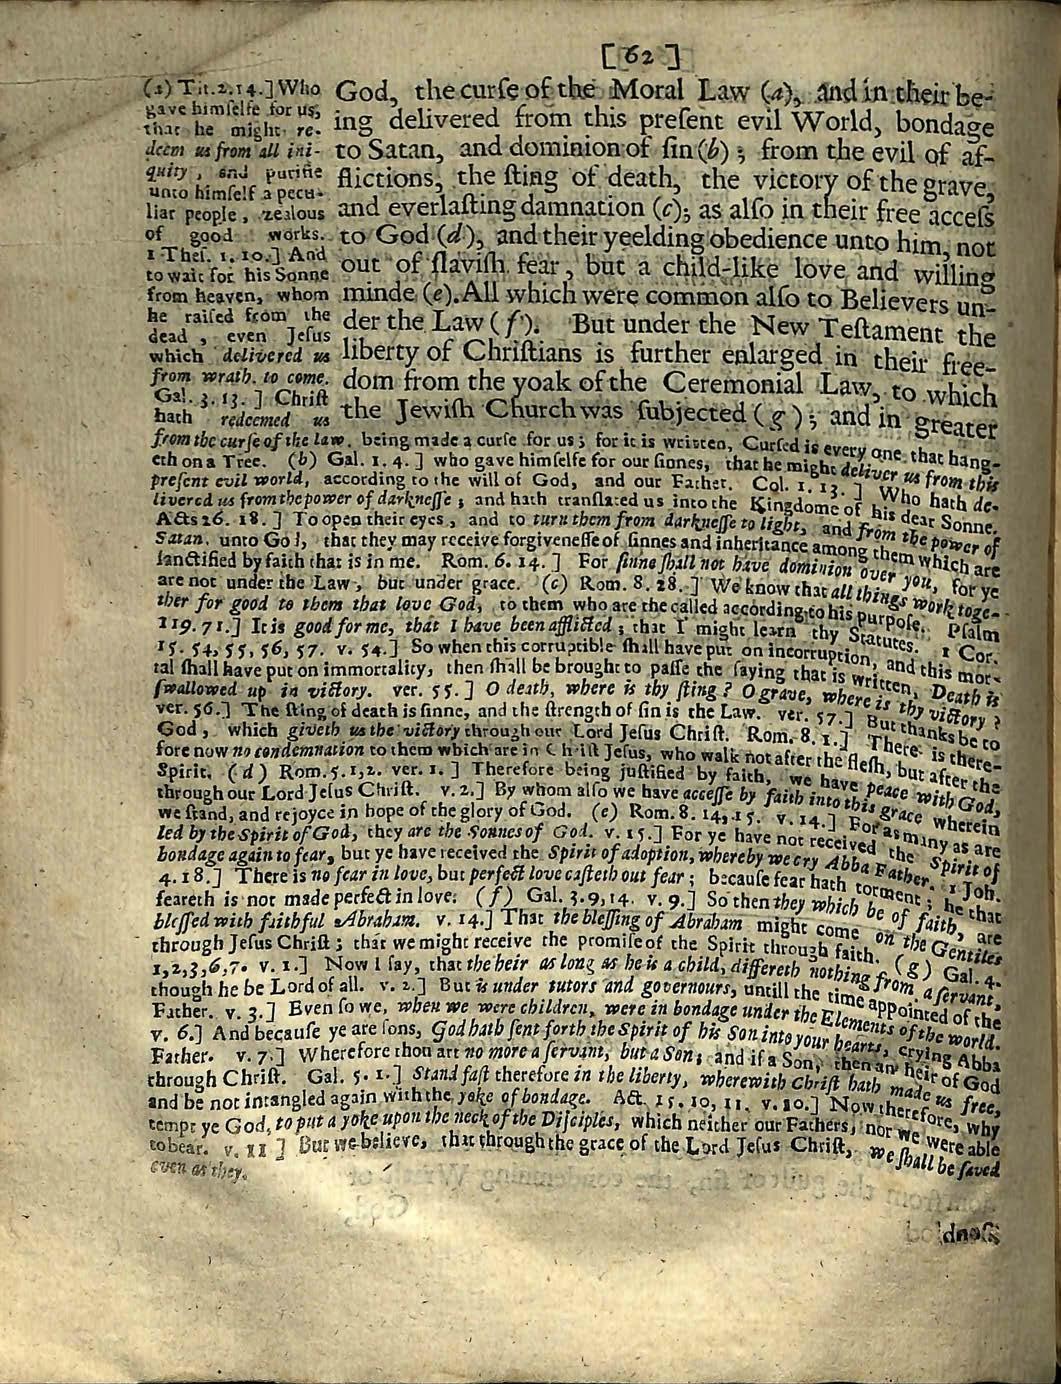 [62]
God, the curſe of the Moral Law (a), and in their be-
ing delivered from this preſent evil World, bondage
to Satan, and dominion of ſin (b); from the evil of af-
flictions, the ſting of death, the victory of the grave,
and everlaſting damnation (c); as alſo in their free acceſs
to God (d), and their yeelding obedience unto him, not
out of ſlaviſh fear, but a child-like love and willing
minde (e). All which were common alſo to Believers un-
der the Law (f). But under the New Teſtament the
liberty of Chriſtians is further enlarged in their free-
dom from the yoak of the Ceremonial Law, to which
the Jewiſh Church was ſubjected (g); and in greater
(a) Tit. 2. 14.] Who
gave himſelfe for us,
that he might re-
deem us from all ini-
quity, and purifie
unto himſelf a pecu-
liar people, zealous
of good works.
1 Theſ. 1. 10.] And
to wait for his Sonne
from heaven, whom
he raiſed from the
dead, even Jeſus
which delivered us
from wrath to come.
Gal. 3. 13.] Chriſt
hath redeemed us
from the curſe of the law, being made a curſe for us; for it is written, Curſed is every one that hang-
eth on a Tree. (b) Gal. 1. 4.] who gave himſelfe for our ſinnes, that he might deliver us from this
preſent evil world, according to the will of God, and our Father. Col. 1. 13.] Who hath de-
livered us from the power of darkneſſe; and hath tranſlated us into the Kingdome of his dear Sonne.
Acts 26. 18.] To open their eyes, and to turn them from darkneſſe to light, and from the power of
Satan, unto God, that they may receive forgiveneſſe of ſinnes and inheritance among them which are
ſanctified by faith that is in me. Rom. 6. 14.] For ſinne ſhall not have dominion over you, for ye
are not under the Law, but under grace. (c) Rom. 8. 28.] We know that all things work toge-
ther for good to them that love God, to them who are the called according to his purpoſe. Pſalm
119. 71.] It is good for me, that I have been afflicted; that I might learn thy Statutes. 1 Cor.
15. 54, 55, 56, 57. v. 54.] So when this corruptible ſhall have put on incorruption, and this mor-
tal ſhall have put on immortality, then ſhall be brought to paſſe the ſaying that is written, Death is
ſwallowed up in victory. ver. 55.] O death, where is thy ſting? O grave, where is thy victory?
ver. 56.] The ſting of death is ſinne, and the ſtrength of ſin is the Law. ver. 57.] But thanks be to
God, which giveth us the victory through our Lord Jeſus Chriſt. Rom. 8. 1.] There is there-
fore now no condemnation to them which are in Chriſt Jeſus, who walk not after the fleſh, but after the
Spirit. (d) Rom. 5. 1, 2. ver. 1.] Therefore being juſtified by faith, we have peace with God,
through our Lord Jeſus Chriſt. v. 2.] By whom alſo we have acceſſe by faith into this grace wherein
we ſtand, and rejoyce in hope of the glory of God. (e) Rom. 8. 14, 15. v. 14.] For as many as are
led by the Spirit of God, they are the Sonnes of God. v. 15.] For ye have not received the Spirit of
bondage again to fear, but ye have received the Spirit of adoption, whereby we cry Abba Father. 1 Joh.
4. 18.] There is no fear in love, but perfect love caſteth out fear; becauſe fear hath torment; he that
feareth is not made perfect in love. (f) Gal. 3. 9, 14. v. 9.] So then they which be of faith, are
bleſſed with faithful Abraham. v. 14.] That the bleſſing of Abraham might come on the Gentiles
through Jeſus Chriſt; that we might receive the promiſe of the Spirit through faith. (g) Gal. 4.
1, 2, 3, 6, 7. v. 1.] Now I ſay, that the heir as long as he is a child, differeth nothing from a ſervant,
though he be Lord of all. v. 2.] But is under tutors and governours, untill the time appointed of the
Father. v. 3.] Even ſo we, when we were children, were in bondage under the Elements of the world.
v. 6.] And becauſe ye are ſons, God hath ſent forth the Spirit of his Son into your hearts, crying Abba
Father. v. 7.] Wherefore thou art no more a ſervant, but a Son; and if a Son, then an heir of God
through Chriſt. Gal. 5. 1.] Stand faſt therefore in the liberty, wherewith Chriſt hath made us free,
and be not intangled again with the yoke of bondage. Act. 15. 10, 11. v. 10.] Now therefore, why
tempt ye God, to put a yoke upon the neck of the Diſciples, which neither our Fathers, nor we were able
to bear. v. 11] But we believe, that through the grace of the Lord Jeſus Chriſt, we ſhall be ſaved
even as they.